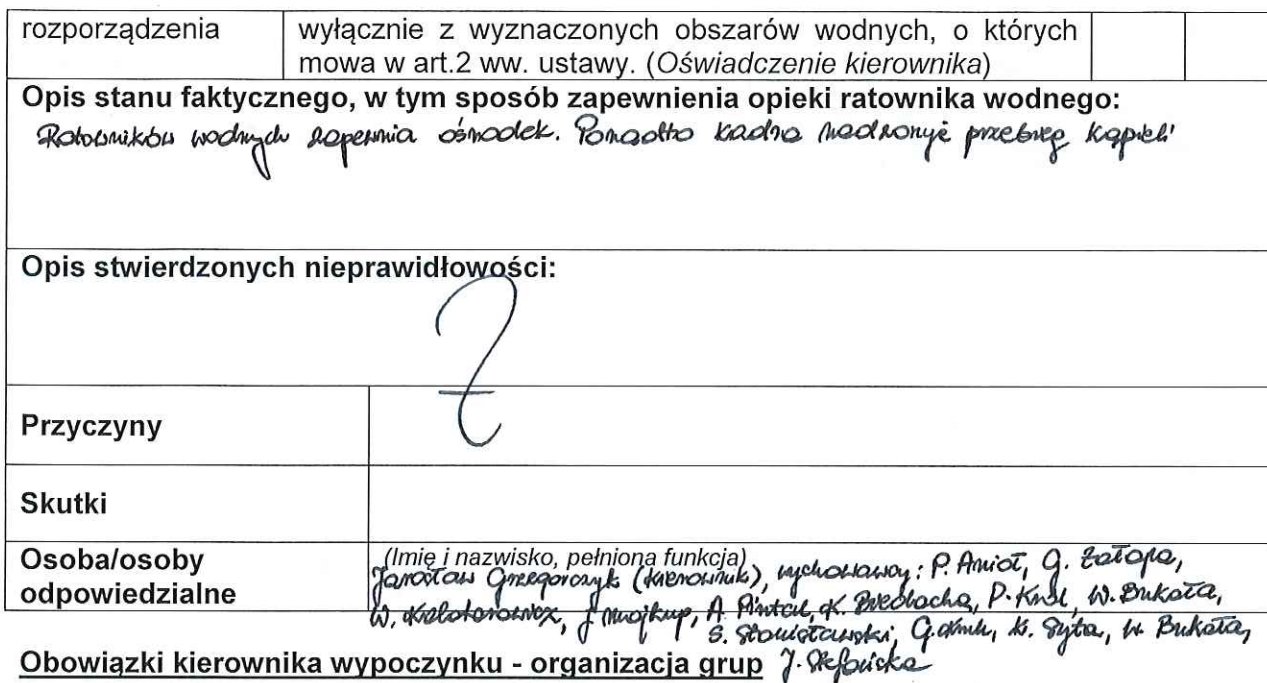 rozporządzenia wyłącznie z wyznaczonych obszarów wodnych, o których
mowa w art.2 ww. ustawy. (Oświadczenie kierownika)
Opis stanu faktycznego, w tym sposób zapewnienia opieki ratownika wodnego:
Ratowników wodnych zapewnia ośrodek. Ponadto kadra nadzoruje przebieg kąpieli
Opis stwierdzonych nieprawidłowości:
Przyczyny
Skutki
Osoba/osoby
odpowiedzialne
(Imię i nazwisko, pełniona funkcja)
Jarosław Grzegorczyk (kierownik), wychowawcy: P. Anioł, G. Załopa,
W. J. A. K. P. Król, W. Bukała,
S. Stanisławski, G. K. Syta, W. Bukała,
Obowiązki kierownika wypoczynku - organizacja grup J. Stefańska